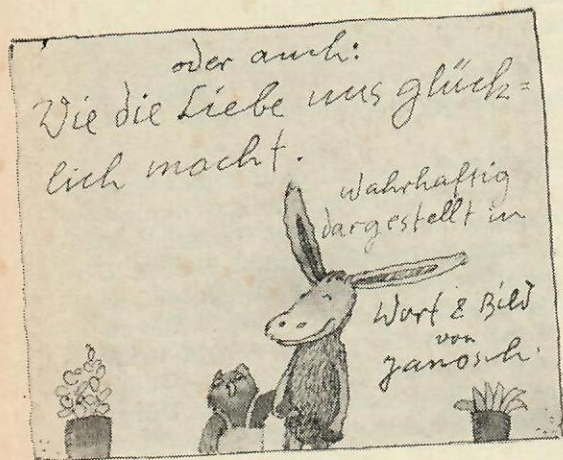 oder auch:
Wie die Liebe uns glück=
lich macht.
wahrhaftig
dargestellt in
Wort & Bild
von
Janosch.